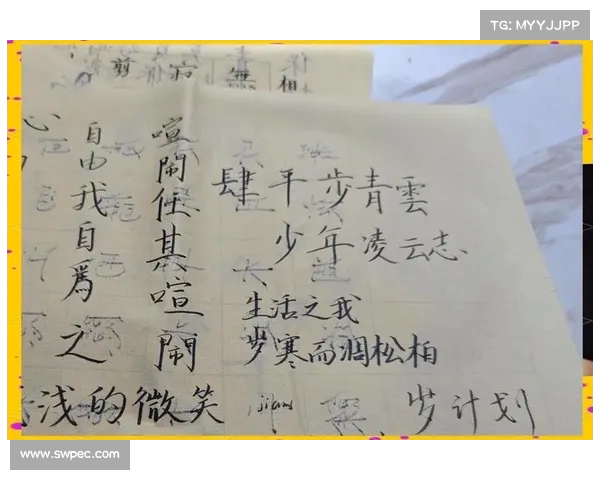 TG: MYYJJPP
剪 寂 無 相
心
自由我自為之
喧鬧任其喧鬧
肆 平步青雲
少年凌云志
生活之我
岁寒而凋松柏
浅的微笑
jian
岁计划
www.swpec.com